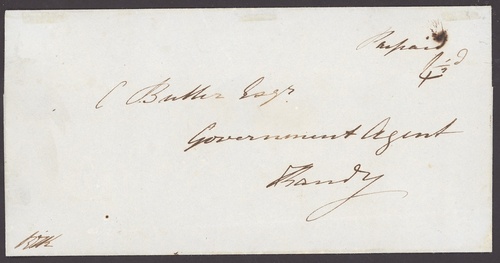 Prepaid
4½d
C Buller Esqr.
Government Agent
Kandy